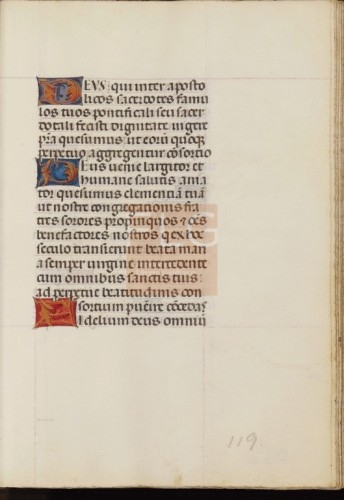 DEUS qui inter aposto
licos sacerdotes famu
los tuos pontificali seu sacer
dotali fecisti dignitate vigere
pręsta quesumus ut eorū quoque
perpetuo aggregentur cōsortio
Deus venie largitor et
humane salutis ama
tor quesumus clementiā tuā
ut nostre congregationis fra
tres sorores propinquos et
benefactores nostros qui ex hoc
seculo transierunt beata mari
a semper virgine intercedente
cum omnibus sanctis tuis
ad perpetue beatitudinis con
sortium
Fidelium deus omniū
119.